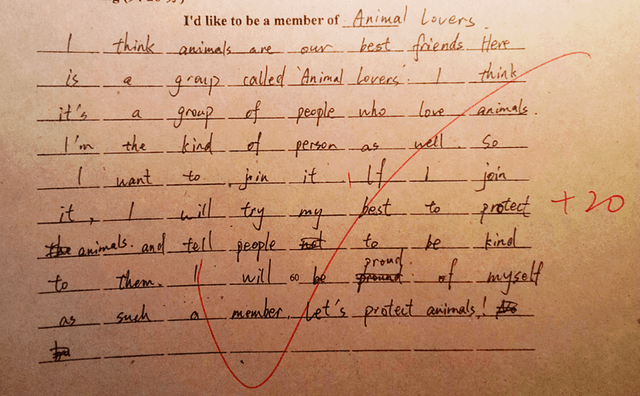 I'd like to be a member of Animal Lovers.
I think animals are our best friends. Here
is a group called 'Animal Lovers'. I think
it's a group of people who love animals.
I'm the kind of person as well. So
I want to join it. If I join
it, I will try my best to protect +20
animals. and tell people to be kind
to them. I will so be proud of myself
as such a member. Let's protect animals!